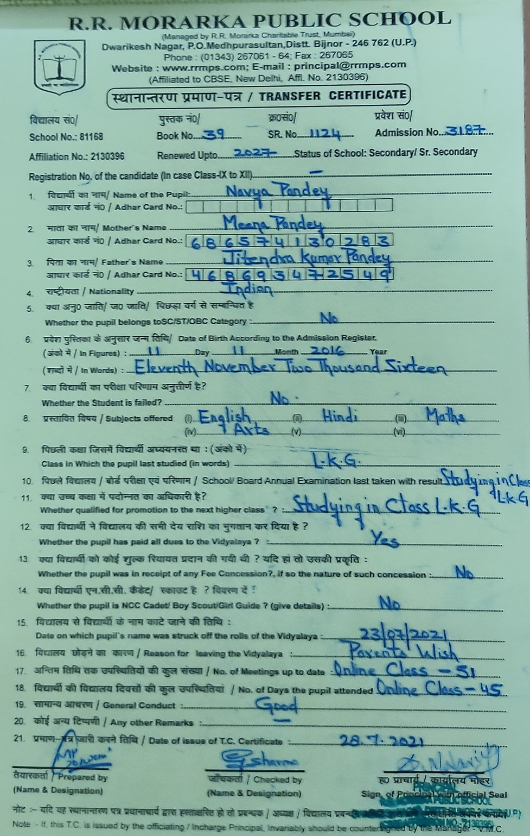 R.R. MORARKA PUBLIC SCHOOL
(Managed by R.R. Morarka Charitable Trust, Mumbai)
Dwarikesh Nagar, P.O.Medhpurasultan,Distt. Bijnor - 246 762 (U.P.)
Phone : (01343) 267061 - 64; Fax : 267065
Website : www.rrmps.com; E-mail : principal@rrmps.com
(Affiliated to CBSE, New Delhi, Affi. No. 2130396)
स्थानान्तरण प्रमाण-पत्र / TRANSFER CERTIFICATE
विद्यालय सं०/ पुस्तक नं०/ क्र०सं०/ प्रवेश सं०/
School No.: 81168 Book No. 39 SR. No. 1124 Admission No. 3187
Affiliation No.: 2130396 Renewed Upto 2027 Status of School: Secondary/ Sr. Secondary
Registration No. of the candidate (In case Class-IX to XII) —
1. विद्यार्थी का नाम/ Name of the Pupil: Navya Pandey
आधार कार्ड नं० / Adhar Card No.:
2. माता का नाम/ Mother's Name Meena Pandey
आधार कार्ड नं० / Adhar Card No.: 686574130283
3. पिता का नाम/ Father's Name Jitendra Kumar Pandey
आधार कार्ड नं० / Adhar Card No.: 468693472549
4. राष्ट्रीयता / Nationality Indian
5. क्या अनु० जाति/ ज० जाति/ पिछड़ा वर्ग से सम्बन्धित है
Whether the pupil belongs toSC/ST/OBC Category : No
6. प्रवेश पुस्तिका के अनुसार जन्म तिथि/ Date of Birth According to the Admission Register.
(अंको में / In Figures) : 11 Day 11 Month 2016 Year
(शब्दों में / In Words) : Eleventh November Two Thousand Sixteen
7. क्या विद्यार्थी का परीक्षा परिणाम अनुत्तीर्ण है?
Whether the Student is failed? No.
8. प्रस्तावित विषय / Subjects offered (i) English (ii) Hindi (iii) Maths
(iv) Arts (v) (vi)
9. पिछली कक्षा जिसमें विद्यार्थी अध्ययनरत था : (अंको में)
Class in Which the pupil last studied (in words) L.K.G.
10. पिछले विद्यालय / बोर्ड परीक्षा एवं परिणाम / School/ Board Annual Examination last taken with result Studying in Class L.K.G
11. क्या उच्च कक्षा में पदोन्नत का अधिकारी है?
Whether qualified for promotion to the next higher class ? : Studying in Class L.K.G
12. क्या विद्यार्थी ने विद्यालय की सभी देय राशि का भुगतान कर दिया है ?
Whether the pupil has paid all dues to the Vidyalaya ? : Yes
13. क्या विद्यार्थी को कोई शुल्क रियायत प्रदान की गयी थी ? यदि हां तो उसकी प्रकृति :
Whether the pupil was in receipt of any Fee Concession?, if so the nature of such concession : No
14. क्या विद्यार्थी एन.सी.सी. कैडेट/ स्काउट है ? विवरण दें !
Whether the pupil is NCC Cadet/ Boy Scout/Girl Guide ? (give details) : No
15. विद्यालय से विद्यार्थी के नाम काटे जाने की तिथि :
Date on which pupil's name was struck off the rolls of the Vidyalaya : 23/07/2021
16. विद्यालय छोड़ने का कारण / Reason for leaving the Vidyalaya : Parents Wish
17. अन्तिम तिथि तक उपस्थितियों की कुल संख्या / No. of Meetings up to date : Online Class - 51
18. विद्यार्थी की विद्यालय दिवसों की कुल उपस्थितियां / No. of Days the pupil attended Online Class - 45
19. सामान्य आचरण / General Conduct : Good
20. कोई अन्य टिप्पणी / Any other Remarks : —
21. प्रमाण-पत्र जारी करने तिथि / Date of issue of T.C. Certificate : 28.7.2021
तैयारकर्ता / Prepared by जाँचकर्ता / Checked by ह० प्राचार्य / कार्यालय मोहर
(Name & Designation) (Name & Designation) Sign. of Principal with official Seal
नोट :- यदि यह स्थानान्तरण पत्र प्रधानाचार्य द्वारा हस्ताक्षरित हो तो प्रबन्धक / अध्यक्ष / विद्यालय
Note :- If, this T.C. is issued by the officiating / Incharge Principal, Invariably should be countersigned by the Manager - V.M.C.